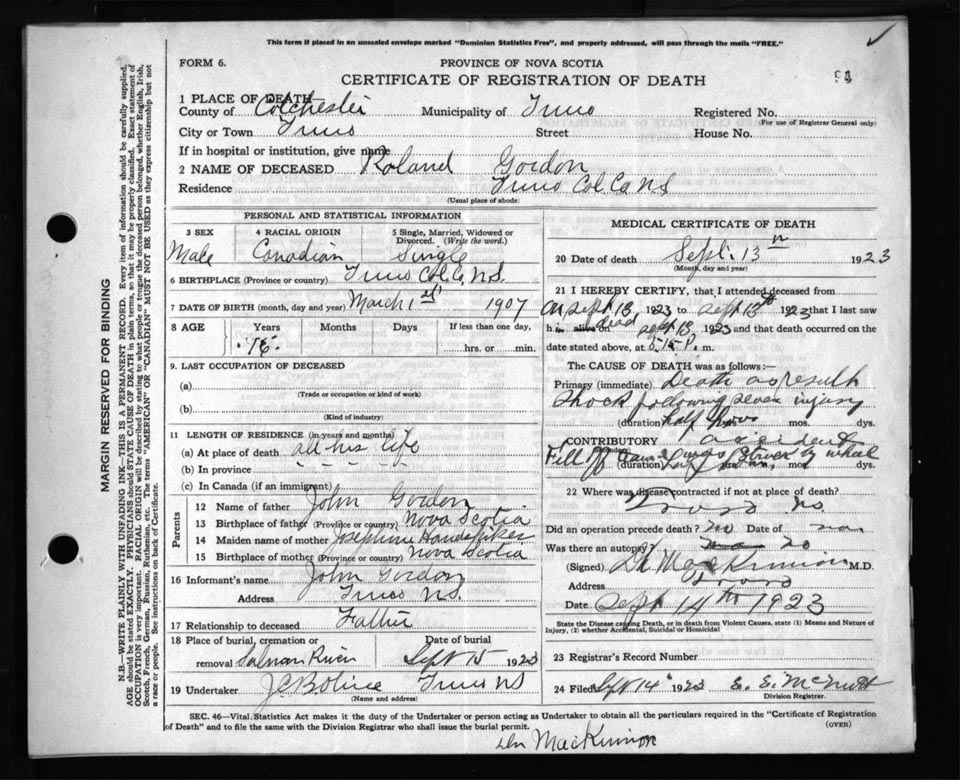 This form if placed in an unsealed envelope marked "Dominion Statistics Free", and properly addressed, will pass through the mails "FREE."
FORM 6.
PROVINCE OF NOVA SCOTIA
CERTIFICATE OF REGISTRATION OF DEATH
1 PLACE OF DEATH
County of Colchester Municipality of Truro Registered No.
(For use of Registrar General only)
City or Town Truro Street House No.
If in hospital or institution, give name
2 NAME OF DECEASED Roland Gordon
Residence Truro Col Co NS
(Usual place of abode)
PERSONAL AND STATISTICAL INFORMATION
3 SEX 4 RACIAL ORIGIN 5 Single, Married, Widowed or Divorced. (Write the word.)
Male Canadian Single
6 BIRTHPLACE (Province or country) Truro Col Co, N.S.
7 DATE OF BIRTH (month, day and year) March 1st 1907
8 AGE Years Months Days If less than one day,
16 hrs. or min.
9. LAST OCCUPATION OF DECEASED
(a)
(Trade or occupation or kind of work)
(b)
(Kind of industry)
11 LENGTH OF RESIDENCE (in years and months)
(a) At place of death all his life
(b) In province " " "
(c) In Canada (if an immigrant)
Parents
12 Name of father John Gordon
13 Birthplace of father (Province or country) Nova Scotia
14 Maiden name of mother Josephine
15 Birthplace of mother (Province or country) Nova Scotia
16 Informant's name John Gordon
Address Truro NS.
17 Relationship to deceased Father
18 Place of burial, cremation or removal Salmon River Date of burial Sept 15 1923
19 Undertaker Truro NS
(Name and address)
MEDICAL CERTIFICATE OF DEATH
20 Date of death Sept. 13th 1923
(Month, day and year)
21 I HEREBY CERTIFY, that I attended deceased from
Sept 13, 1923 to Sept 13th 1923 that I last saw
h alive on dead Sept 13 1923 and that death occurred on
date stated above, at 5.15 P. m.
The CAUSE OF DEATH was as follows:—
Primary (immediate) Death as result
Shock following severe injury
(duration) half hour mos. dys.
CONTRIBUTORY accident
Fell off by wheel
(duration) mos. dys.
22 Where was disease contracted if not at place of death?
Truro NS.
Did an operation precede death? no Date of
Was there an autopsy? no
(Signed) MacKinnon M.D.
Address Truro
Date Sept 14th 1923
State the Disease causing Death, or in death from Violent Causes, state (1) Means and Nature of Injury, (2) whether Accidental, Suicidal or Homicidal
23 Registrar's Record Number
24 Filed Sept 14th 1923 E. E. McNutt
Division Registrar.
SEC. 46—Vital Statistics Act makes it the duty of the Undertaker or person acting as Undertaker to obtain all the particulars required in the "Certificate of Registration of Death" and to file the same with the Division Registrar who shall issue the burial permit.
(OVER)
Dr MacKinnon
MARGIN RESERVED FOR BINDING
N.B.—WRITE PLAINLY WITH UNFADING INK—THIS IS A PERMANENT RECORD. Every item of information should be carefully supplied,
AGE should be stated EXACTLY. PHYSICIANS should STATE CAUSE OF DEATH in plain terms, so that it may be properly classified. Exact statement of
OCCUPATION is very important. RACIAL ORIGIN will be described by stating to what people or tongue the deceased person belonged, whether English, Irish,
Scotch, French, German, Russian, Ruthenian, etc. The terms "AMERICAN" or "CANADIAN" MUST NOT BE USED as they express citizenship but not
a race or people. See instructions on back of Certificate.